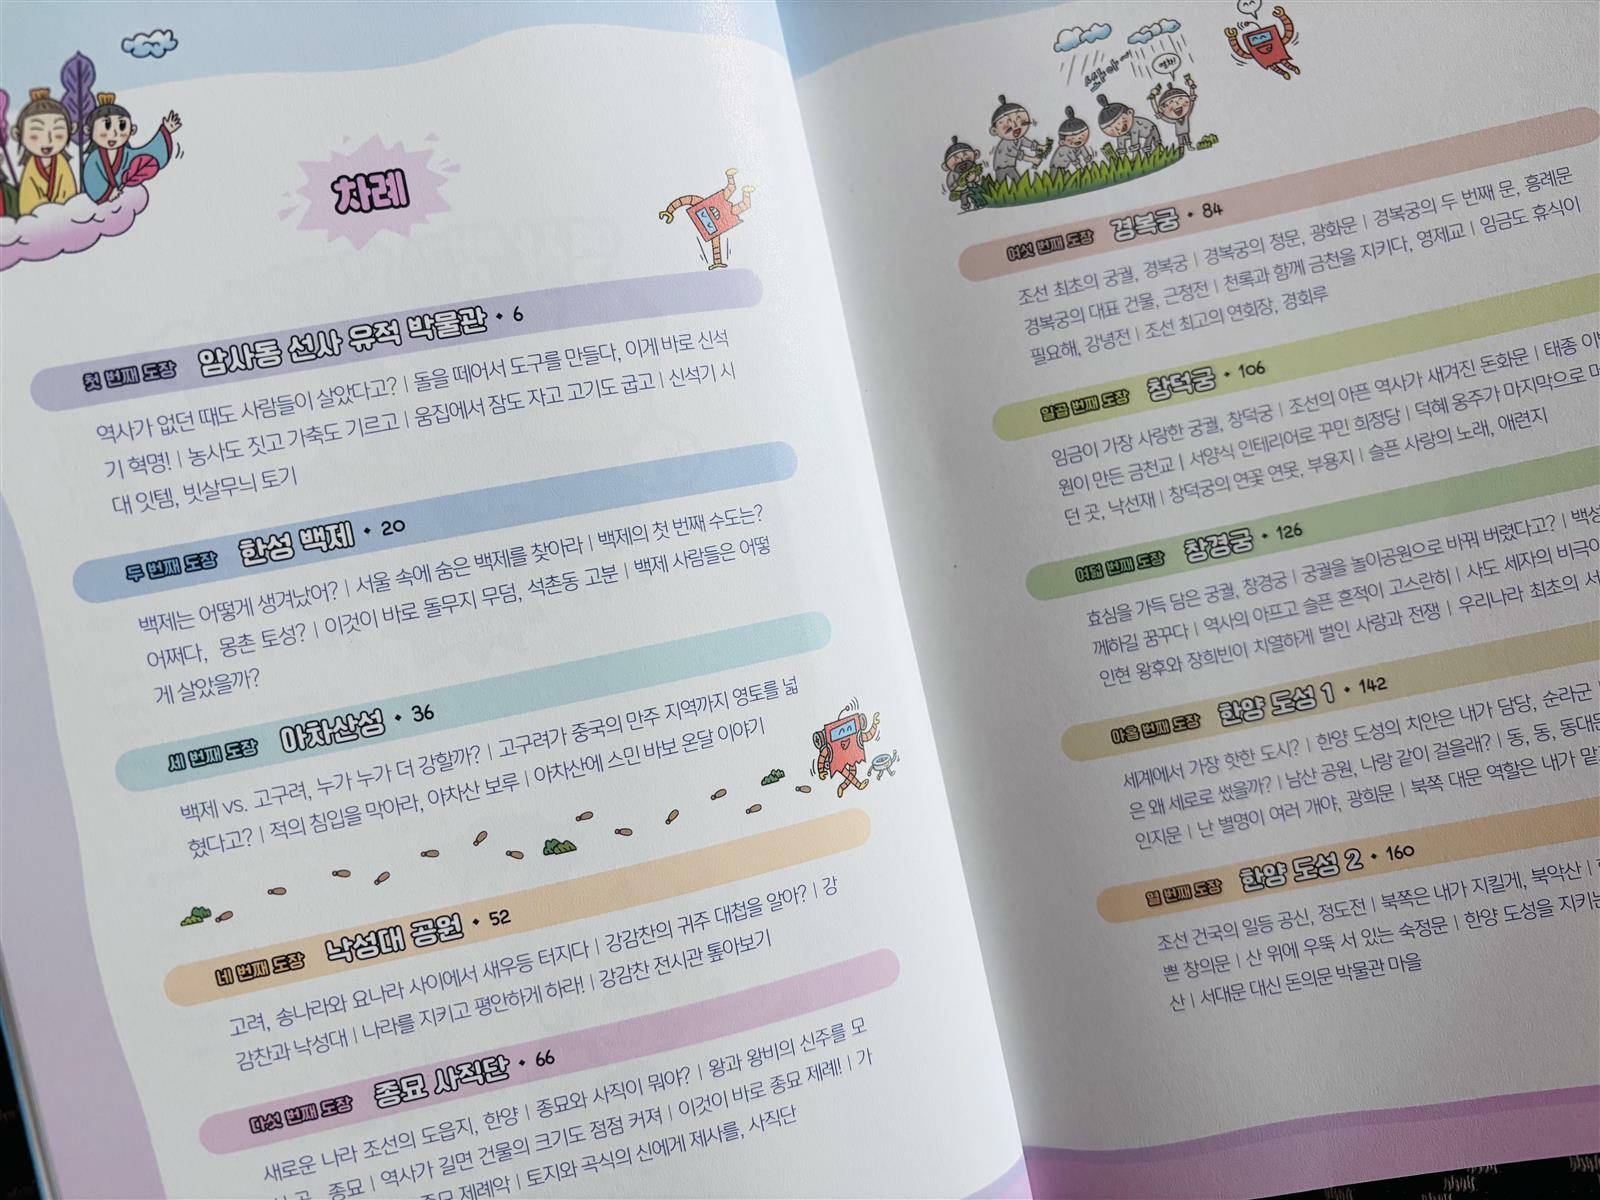 차례
첫 번째 도장 암사동 선사 유적 박물관 • 6
역사가 없던 때도 사람들이 살았다고? | 돌을 떼어서 도구를 만들다, 이게 바로 신석
기 혁명! | 농사도 짓고 가축도 기르고 | 움집에서 잠도 자고 고기도 굽고 | 신석기 시
대 잇템, 빗살무늬 토기
두 번째 도장 한성 백제 • 20
백제는 어떻게 생겨났어? | 서울 속에 숨은 백제를 찾아라 | 백제의 첫 번째 수도는?
어쩌다, 몽촌 토성? | 이것이 바로 돌무지 무덤, 석촌동 고분 | 백제 사람들은 어떻
게 살았을까?
세 번째 도장 아차산성 • 36
백제 vs. 고구려, 누가 누가 더 강할까? | 고구려가 중국의 만주 지역까지 영토를 넓
혔다고? | 적의 침입을 막아라, 아차산 보루 | 아차산에 스민 바보 온달 이야기
네 번째 도장 낙성대 공원 • 52
고려, 송나라와 요나라 사이에서 새우등 터지다 | 강감찬의 귀주 대첩을 알아? | 강
감찬과 낙성대 | 나라를 지키고 평안하게 하라! | 강감찬 전시관 톺아보기
다섯 번째 도장 종묘 사직단 • 66
새로운 나라 조선의 도읍지, 한양 | 종묘와 사직이 뭐야? | 왕과 왕비의 신주를 모
종묘 | 역사가 길면 건물의 크기도 점점 커져 | 이것이 바로 종묘 제례! | 가
종묘 제례악 | 토지와 곡식의 신에게 제사를, 사직단
쏴아~
여섯 번째 도장 경복궁 • 84
조선 최초의 궁궐, 경복궁 | 경복궁의 정문, 광화문 | 경복궁의 두 번째 문, 흥례문
경복궁의 대표 건물, 근정전 | 천록과 함께 금천을 지키다, 영제교 | 임금도 휴식이
필요해, 강녕전 | 조선 최고의 연회장, 경회루
일곱 번째 도장 창덕궁 • 106
임금이 가장 사랑한 궁궐, 창덕궁 | 조선의 아픈 역사가 새겨진 돈화문 | 태종 이방
원이 만든 금천교 | 서양식 인테리어로 꾸민 희정당 | 덕혜 옹주가 마지막으로
던 곳, 낙선재 | 창덕궁의 연꽃 연못, 부용지 | 슬픈 사랑의 노래, 애련지
여덟 번째 도장 창경궁 • 126
효심을 가득 담은 궁궐, 창경궁 | 궁궐을 놀이공원으로 바꿔 버렸다고? | 백성
께하길 꿈꾸다 | 역사의 아프고 슬픈 흔적이 고스란히 | 사도 세자의 비극이
인현 왕후와 장희빈이 치열하게 벌인 사랑과 전쟁 | 우리나라 최초의 서
아홉 번째 도장 한양 도성 1 • 142
세계에서 가장 핫한 도시? | 한양 도성의 치안은 내가 담당, 순라군
은 왜 세로로 썼을까? | 남산 공원, 나랑 같이 걸을래? | 동, 동, 동대문
인지문 | 난 별명이 여러 개야, 광희문 | 북쪽 대문 역할은 내가
열 번째 도장 한양 도성 2 • 160
조선 건국의 일등 공신, 정도전 | 북쪽은 내가 지킬게, 북악산
쁜 창의문 | 산 위에 우뚝 서 있는 숙정문 | 한양 도성을 지키는
산 | 서대문 대신 돈의문 박물관 마을